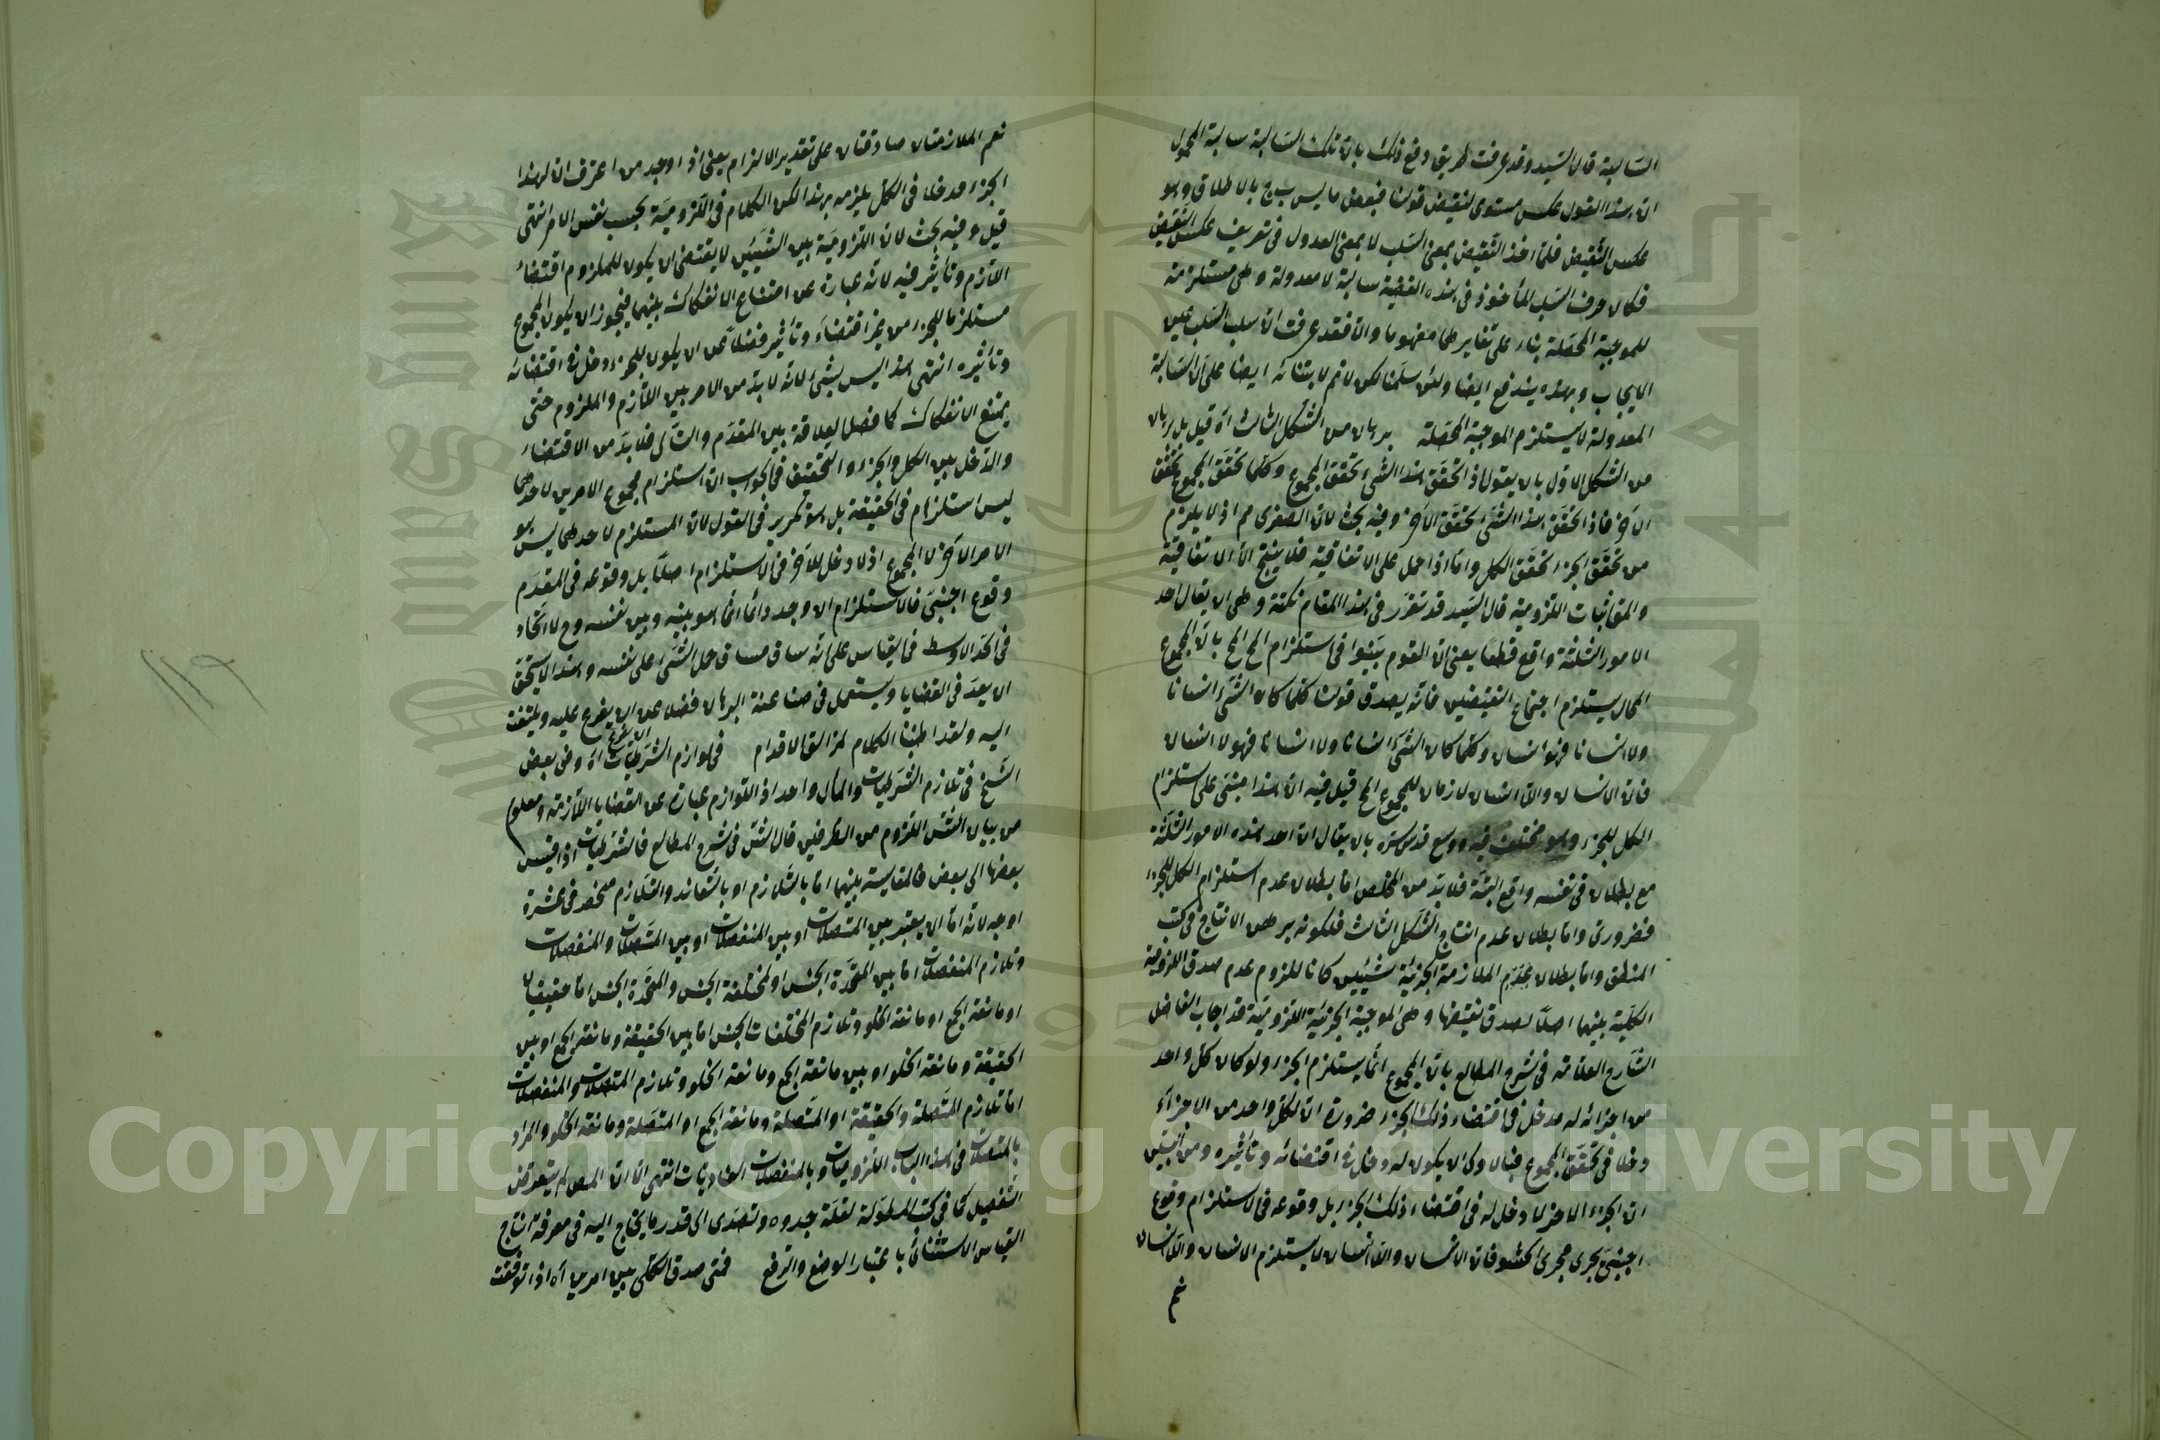 السالبة قال السيد وقد عرفت طريق دفع ذلك بان تلك السالبة سالبة المحمول
ان هذا القول عكس مستوى لنقيض قولنا فبعض ما ليس ب ج بالاطلاق وهو
عكس النقيض فلما اخذ النقيض بمعنى السلب لا بمعنى العدول في تعريف عكس النقيض
فكان حرف السلب المأخوذ في هذه القضية سالبة لا معدولة وهى مستلزمة
للموجبة المحصلة بناء على تغايرهما مفهوما والا فقد عرفت ان سلب السلب عين
الايجاب وبهذه يندفع ايضا ولئن سلمنا لكن لا تم لابتنائه ايضا على ان السالبة
المعدولة لا يستلزم الموجبة المحصلة برهان من الشكل الثالث اه قيل بل برهان
من الشكل الاول بان يقول اذا تحقق هذا الشئ تحقق المجموع وكلما تحقق المجموع تحقق
الآخر فاذا تحقق هذا الشئ تحقق الآخر وفيه بحث لان الصغرى مم اذ لا يلزم
من تحقق الجزء تحقق الكل واما اذا حمل على الاتفاقية فلا ينتج الا الاتفاقية
والمق اثبات اللزومية قال السيد قد تقرر في هذا المقام نكتة وهى ان يقال احد
الامور الثلثة واقع قطعا يعنى ان القوم بينوا في استلزام المح المح بان المجموع
المحال يستلزم اجتماع النقيضين فانه يصدق قولنا كلما كان الشئ انسانا
ولا انسانا فهو انسان وكلما كان الشئ انسانا ولا انسانا فهو لا انسان
فان الانسان واللا انسان لازمان للمجموع المح قيل فيه ان هذا مبنى على استلزام
الكل للجزء وهو مختلف فيه ووسع قدس سره بان يقال ان احد هذه الامور الثلثة
مع بطلان في نفسه واقع البتة فلا بد من المخلص اما بطلان عدم استلزام الكل للجزء
فضرورى واما بطلان عدم انتاج الشكل الثالث فلكونه برهن الانتاج في كتب
المنطق واما بطلان عدم الملازمة الجزئية شيئين كانا للزوم عدم صدق اللزومية
الكلية بينهما اصلا لصدق نقيضها وهى الموجبة الجزئية اللزومية قد اجاب الفاضل
الشارح العلامة في شرح المطالع بان المجموع انما يستلزم الجزء ولو كان كل واحد
من اجزائه له مدخل في اقتضاء ذلك الجزء ضرورة ان لكل واحد من الاجزاء
دخلا في تحقق المجموع فبالاولى ان يكون له دخل في اقتضائه وتأثيره ومن البين
ان الجزء الآخر لا دخل له في اقتضاء ذلك الجزء بل وقوعه في الاستلزام وقوع
اجنبى يجرى مجرى الحشو فان الانسان واللا انسان لا يستلزم الانسان واللا انسان
نعم
نعم الملازمتان صادقتان على تقدير الالتزام يعنى اذا وجد من اعترف ان لهذا
الجزء مدخلا في الكل يلزمه بهذا لكن الكلام في اللزومية بحسب نفس الامر انتهى
قيل وفيه بحث لان اللزومية بين الشيئين لا يقتضى ان يكون للملزوم اقتضاء
اللازم وتأثير فيه لانه عبارة عن امتناع الانفكاك بينهما فيجوز ان يكون المجموع
مستلزما للجزء من غير اقتضاء وتأثير فضلا عن ان يكون للجزء دخل في اقتضائه
وتأثيره انتهى هذا ليس بشئ لانه لا بد من الامر بين اللازم والملزوم حتى
يمتنع الانفكاك كما فصل العلاقة بين المقدم والتالى فلا بد من الاقتضاء
والدخل بين الكل والجزء والتحقيق في الجواب ان استلزام مجموع الامرين لاحدهما
ليس استلزام في الحقيقة بل هو تكرير في القول لان المستلزم لاحدهما ليس هو
الامر الآخر لا المجموع اذ لا دخل للآخر في الاستلزام اصلا بل وقوعه في المقدم
وقوع اجنبى فالاستلزام ان وجد دائما انما هو بينه وبين نفسه وح لا اتحاد
في الحد الاوسط في القياس على انه ساق مساق حمل الشئ على نفسه وهذا لا يستحق
ان يعد في القضايا ويستعمل في صناعة البرهان فضلا عن ان يفرع عليه ويلتفت
اليه ولقد اطنبنا الكلام لمزالق الاقدام في لوازم الشرطيات اه وفي بعض
النسخ في تلازم الشرطيات والمآل واحد اذ اللوازم عبارة عن القضايا اللازمة ومعلوم
من بيان الشئ اللزوم من الطرفين قال الشئ في شرح المطالع فالشرطيات اذا قيس
بعضها الى بعض فالمقايسة بينهما اما بالتلازم او بالتعاند والتلازم منحصر في عشرة
اوجه لانه اما ان يعتبر بين المتصلات او بين المنفصلات او بين المتصلات والمنفصلات
وتلازم المنفصلات اما بين المتحدة الجنس او لمختلفة الجنس والمتحدة الجنس اما حقيقيان
او مانعة الجمع او مانعة الخلو وتلازم المختلفات الجنس اما بين الحقيقة ومانعة الجمع او بين
الحقيقة ومانعة الخلو او بين مانعة الجمع ومانعة الخلو وتلازم المتصلات والمنفصلات
اما تلازم المتصلة والحقيقة او المتصلة ومانعة الجمع او المتصلة ومانعة الخلو والمراد
بالمتصلات في هذا الباب اللزوميات وبالمنفصلات العناديات انتهى الا ان المص لم يتعرض
التفصيل كما في كتب المطولة لقلة جدوه وتصدى الى قدر ما يحتاج اليه في معرفة انتاج
القياس الاستثنائى باعتبار الوضع والرفع فمتى صدق الكلى بين امرين اه اذا توقفت
١١٩
Copyright © King Saud University
King Saud University
جامعة الملك سعود
1957